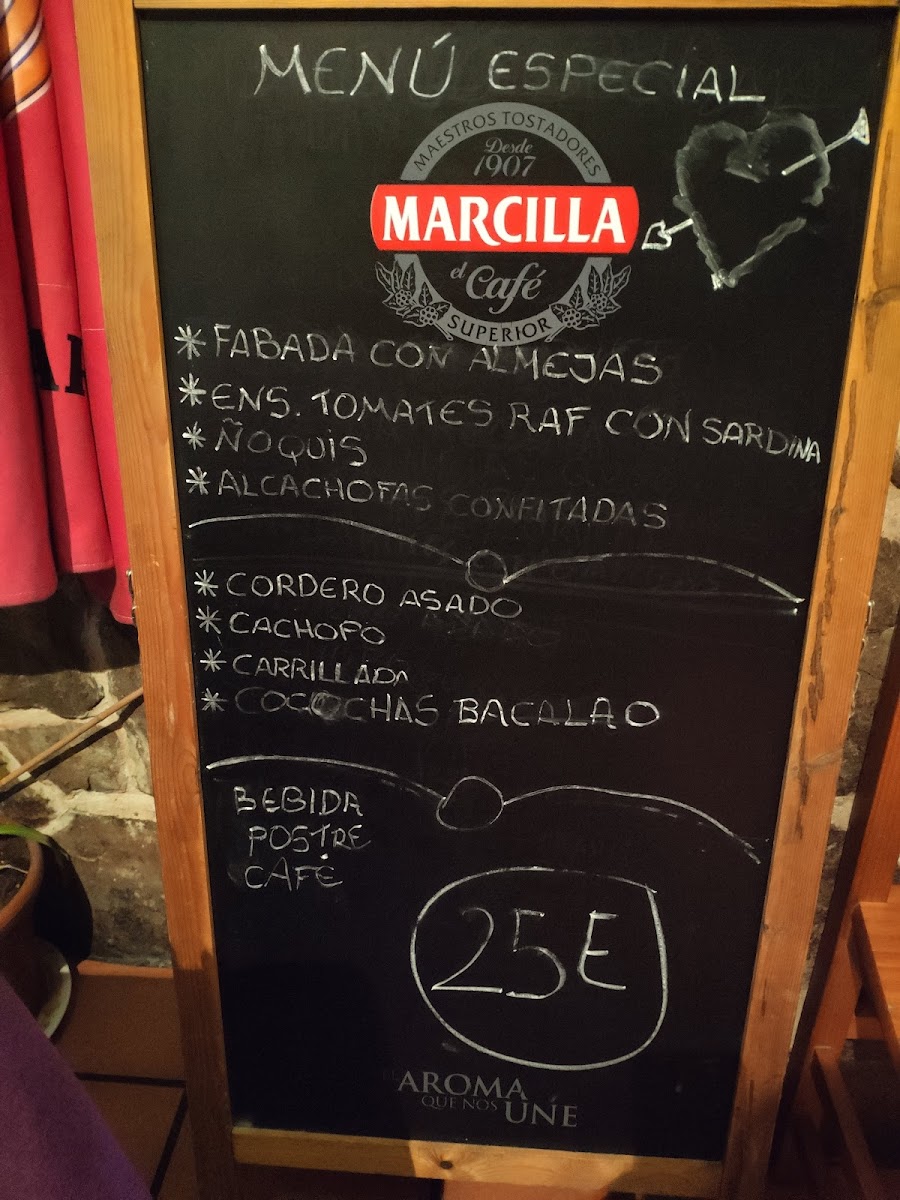 MENÚ ESPECIAL
MAESTROS TOSTADORES
Desde
1907
MARCILLA
el Café
SUPERIOR
*FABADA CON ALMEJAS
*ENS. TOMATES RAF CON SARDINA
*ÑOQUIS
*ALCACHOFAS CONFITADAS
*CORDERO ASADO
*CACHOPO
*CARRILLADA
*COCOCHAS BACALAO
BEBIDA
POSTRE
CAFÉ
25E
AROMA
QUE NOS UNE